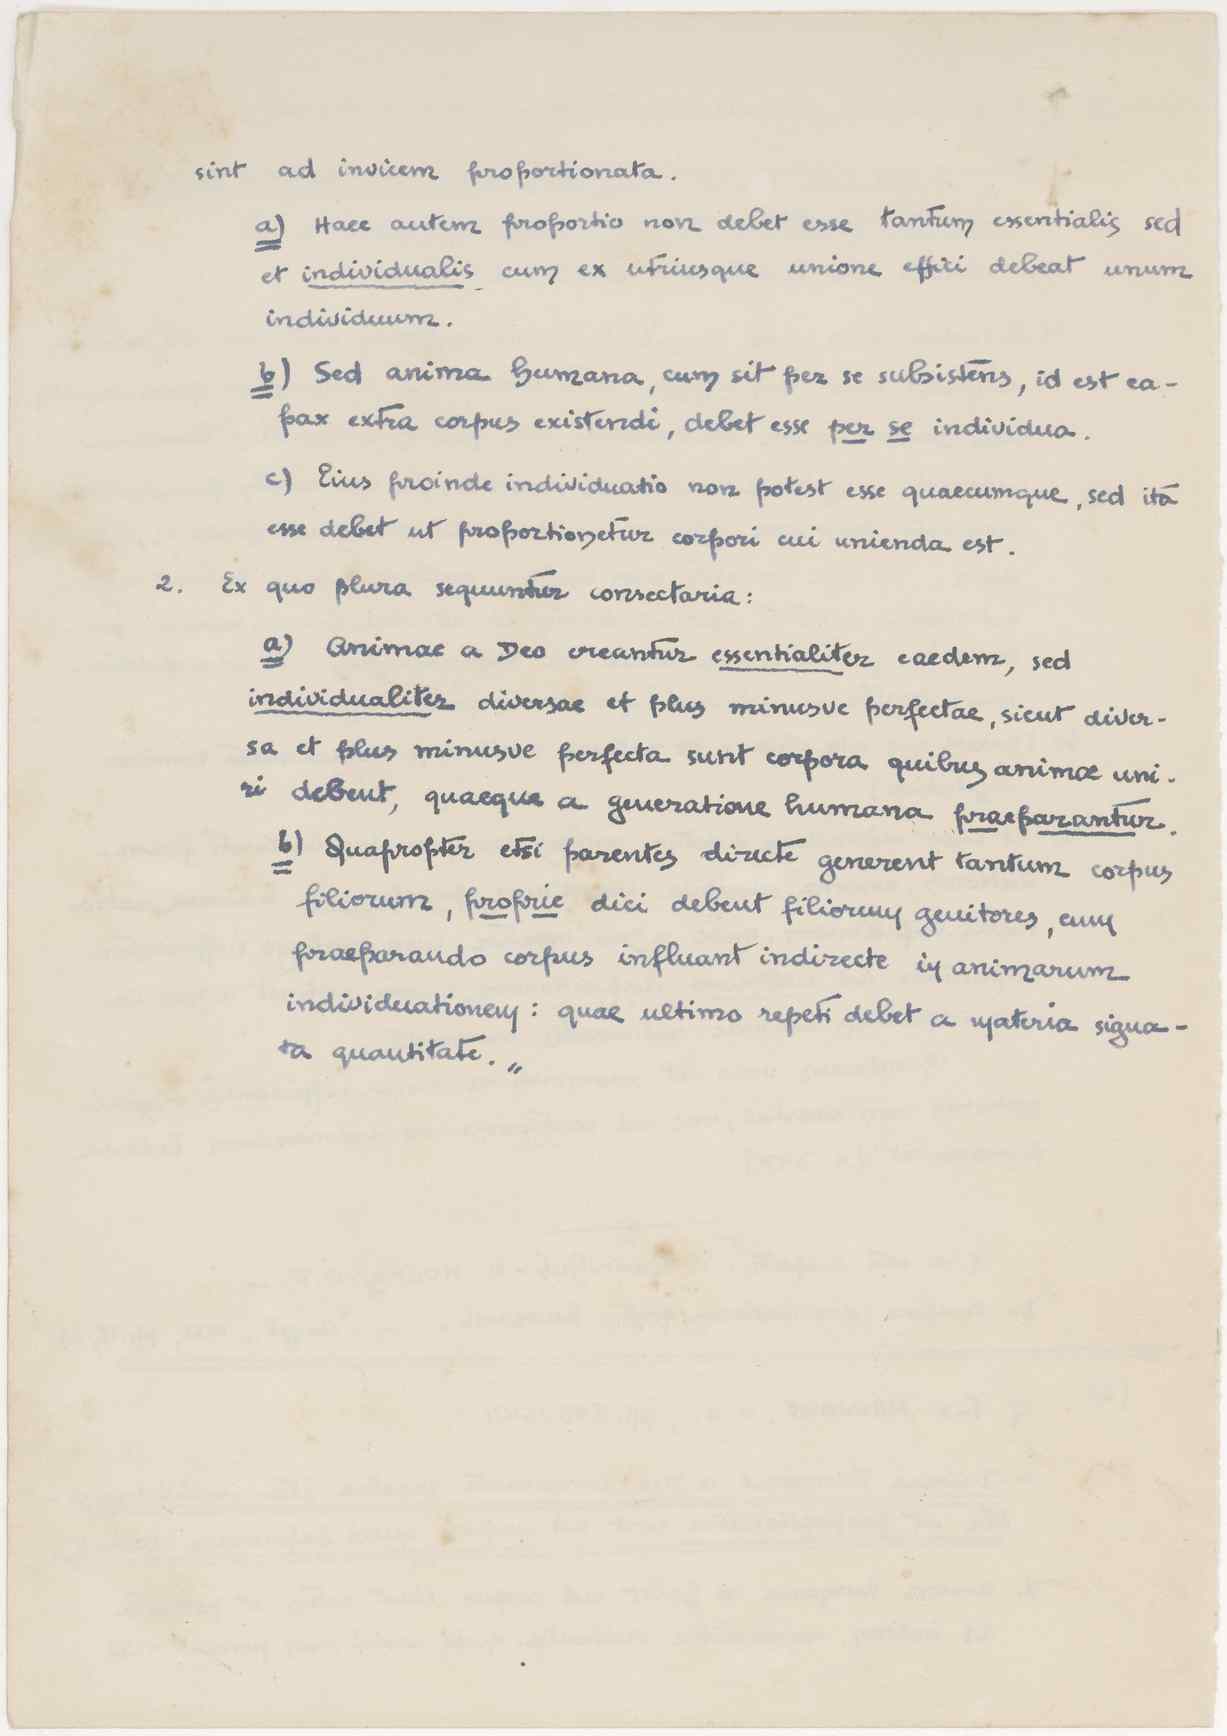 sint ad invicem proportionata.
a) Haec autem proportio non debet esse tantum essentialis sed
et individualis cum ex utriusque unione effici debeat unum
individuum.
b) Sed anima humana, cum sit per se subsistens, id est ca-
pax extra corpus existendi, debet esse per se individua.
c) Eius proinde individuatio non potest esse quaecumque, sed ita
esse debet ut proportionetur corpori cui unienda est.
2. Ex quo plura sequuntur consectaria:
a) Animae a Deo creantur essentialiter eaedem, sed
individualiter diversae et plus minusve perfectae, sicut diver-
sa et plus minusve perfecta sunt corpora quibus animæ uni-
ri debent, quaeque a generatione humana praeparantur.
b) Quapropter etsi parentes directe generent tantum corpus
filiorum, proprie dici debent filiorum genitores, cum
praeparando corpus influant indirecte in animarum
individuationem: quae ultimo repeti debet a materia signa-
ta quantitate.„